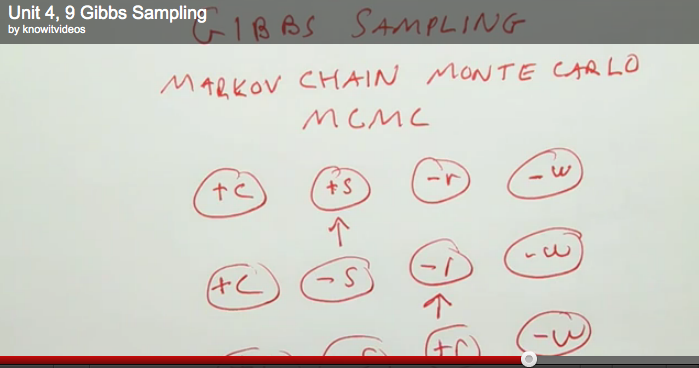 Unit 4, 9 Gibbs Sampling
by knowitvideos
GIBBS SAMPLING
MARKOV CHAIN MONTE CARLO
MCMC
+c +s -r -w
+c -s -r -w
+r -w